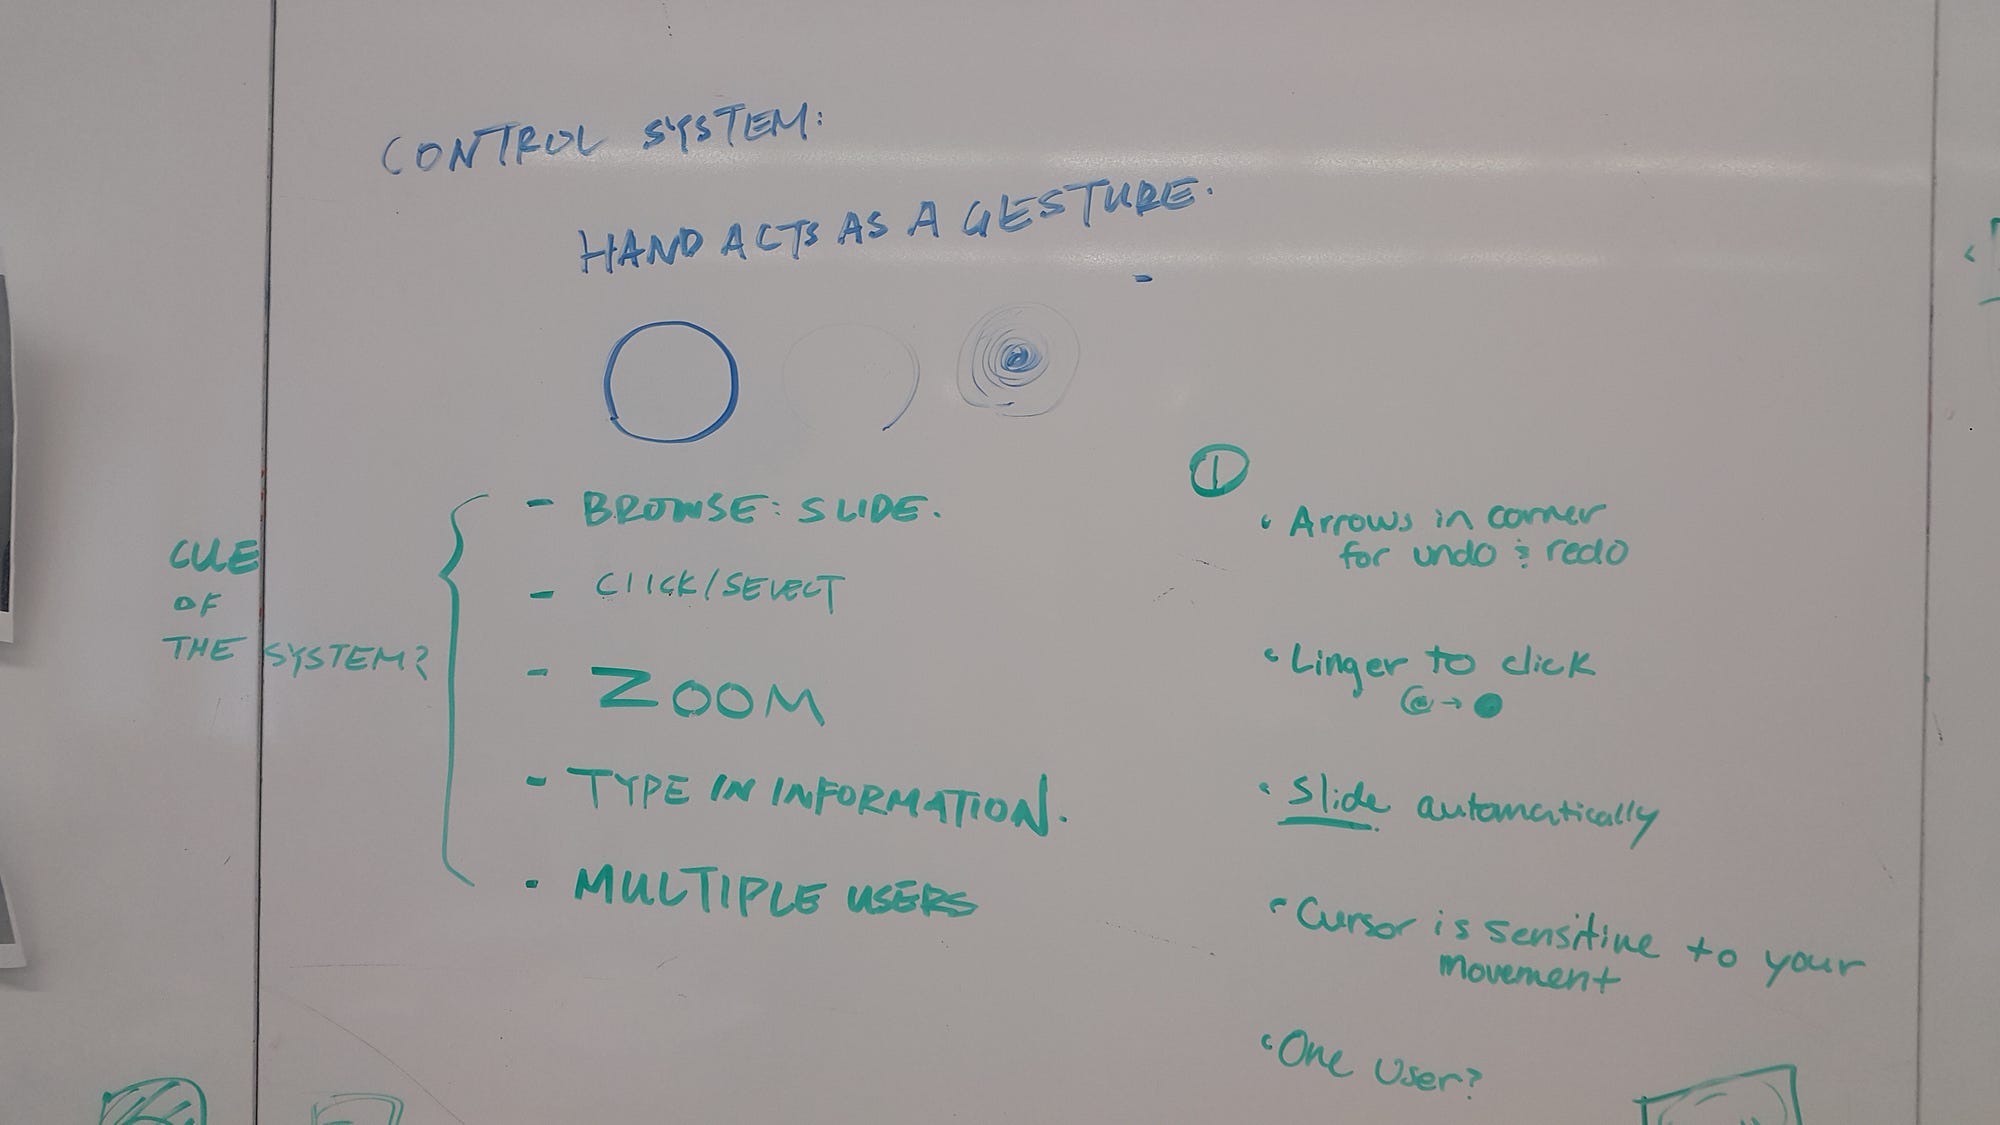 CONTROL SYSTEM:
HAND ACTS AS A GESTURE.
-
CUE
OF
THE SYSTEM?
- BROWSE: SLIDE.
- CLICK/SELECT
- ZOOM
- TYPE IN INFORMATION.
- MULTIPLE USERS
1
• Arrows in corner
for undo & redo
• Linger to click
→
• Slide automatically
• Cursor is sensitive to your
movement
• One user?